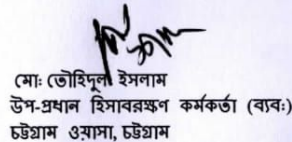 মোঃ তৌহিদুল ইসলাম
উপ-প্রধান হিসাবরক্ষণ কর্মকর্তা (ব্যবঃ)
চট্টগ্রাম ওয়াসা, চট্টগ্রাম